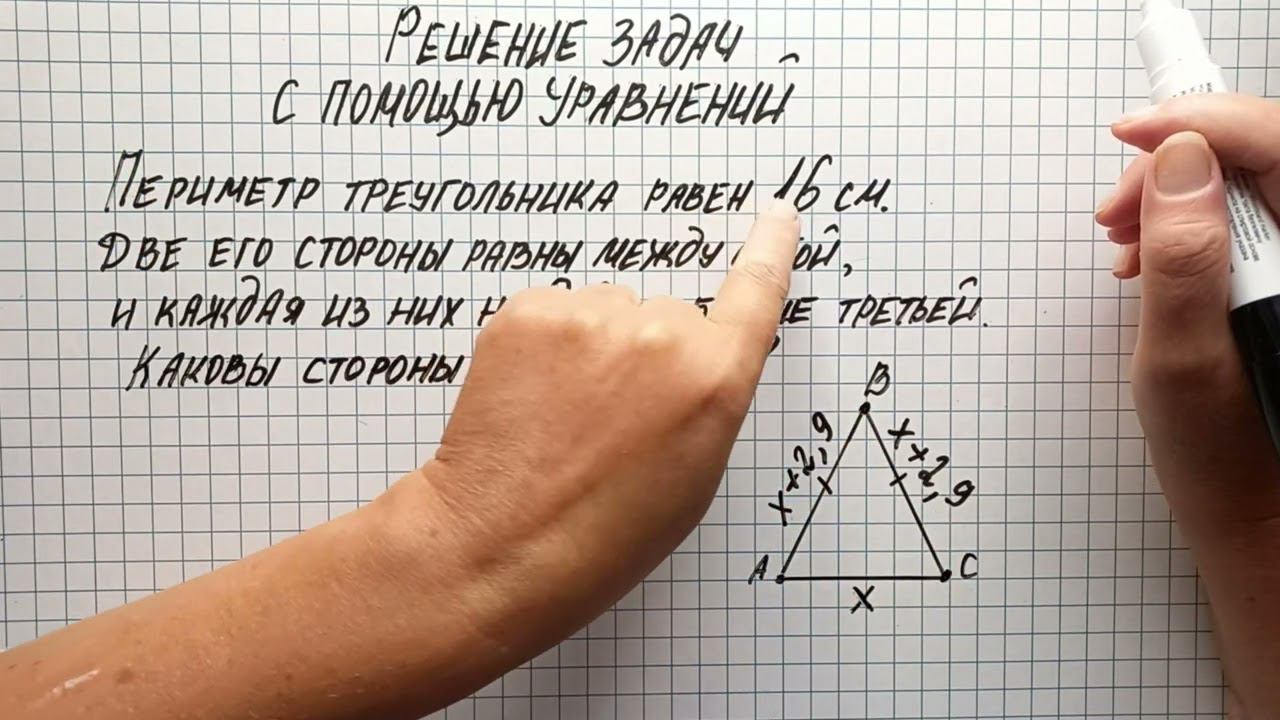 РЕШЕНИЕ ЗАДАЧ
С ПОМОЩЬЮ УРАВНЕНИЙ
ПЕРИМЕТР ТРЕУГОЛЬНИКА РАВЕН 16 СМ.
ДВЕ ЕГО СТОРОНЫ РАВНЫ МЕЖДУ
И КАЖДАЯ ИЗ НИХ ТРЕТЬЕЙ.
КАКОВЫ СТОРОНЫ
B
x+2,9
x+2,9
A
C
x